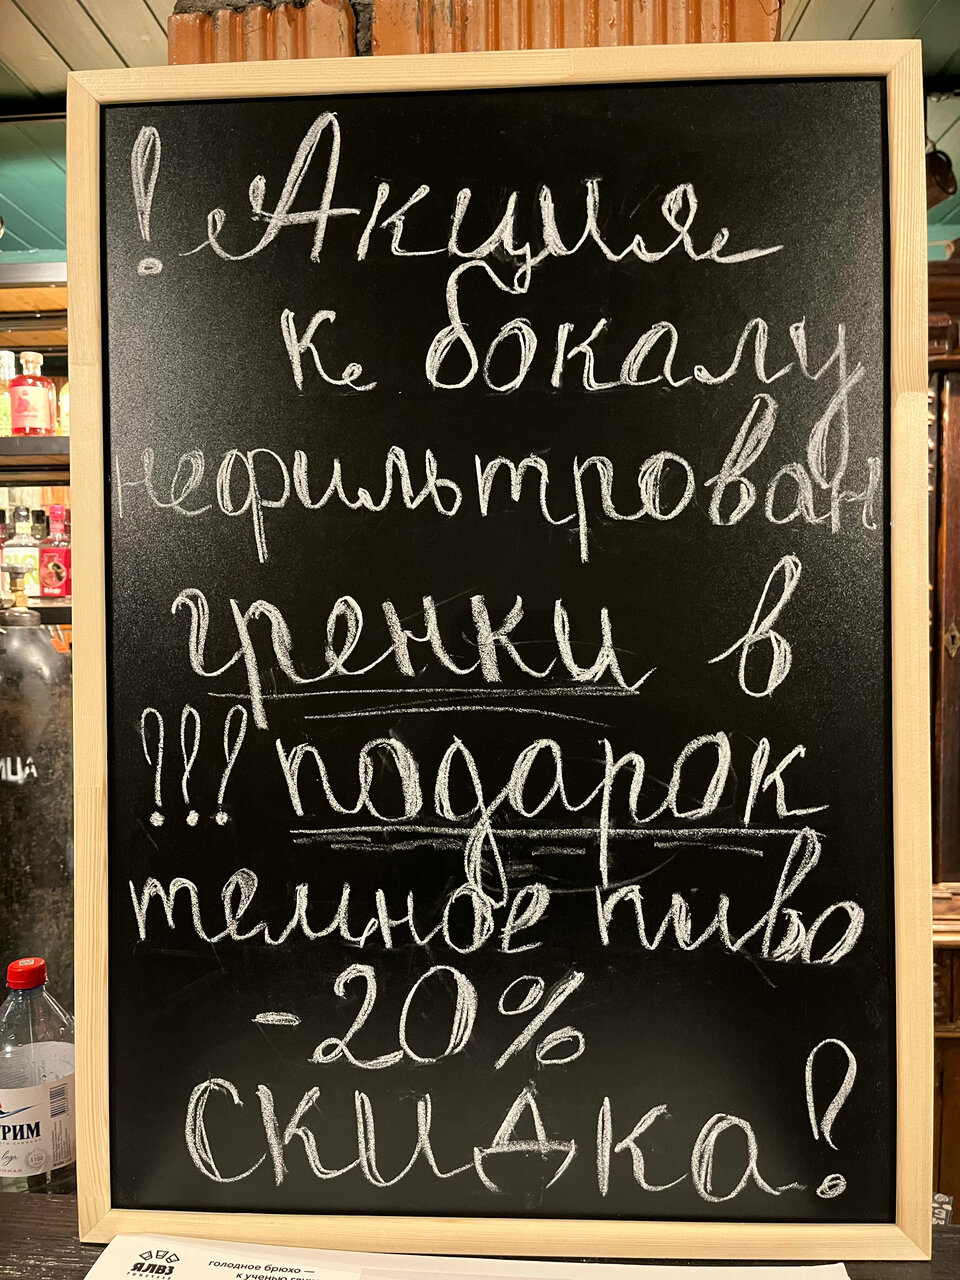 ! Акция
к бокалу
нефильтрован
гренки в
!!! подарок
темное пиво
-20%
скидка!
ИЦА
УРИМ
ЯЛВЗ
голодное брюхо —
к ученью глухо